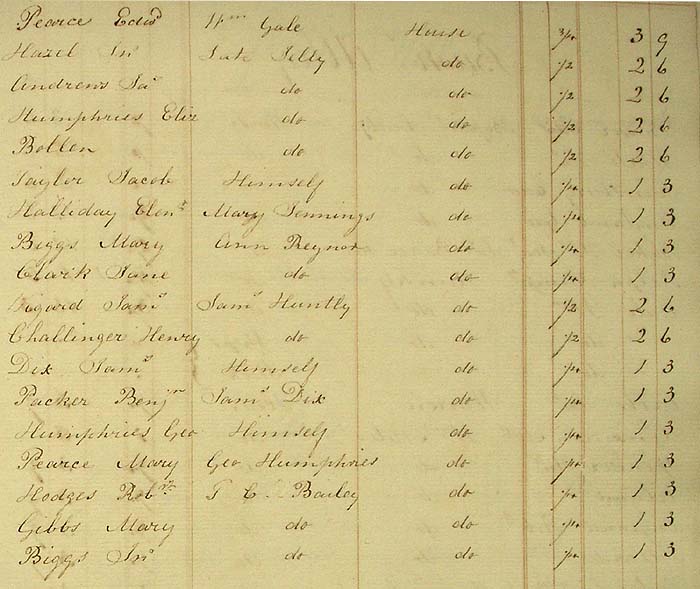 Pearce Edwd Wm Gale House 3/4 3 9
Hazel Jno Late Jelly do 1/2 2 6
Andrews Jas do do 1/2 2 6
Humphries Eliz do do 1/2 2 6
Bollen do do 1/2 2 6
Taylor Jacob Himself do 1/4 1 3
Halliday Elenr Mary Jennings do 1/4 1 3
Biggs Mary Ann Reynor do 1/4 1 3
Clark Jane do do 1/4 1 3
Saml Saml Huntly do 1/2 2 6
Challinger Henry do do 1/2 2 6
Dix Saml Himself do 1/4 1 3
Packer Benjn Saml Dix do 1/4 1 3
Humphries Geo Himself do 1/4 1 3
Pearce Mary Geo Humphries do 1/4 1 3
Hodges Robt T C Bailey do 1/4 1 3
Gibbs Mary do do 1/4 1 3
Biggs Jno do do 1/4 1 3